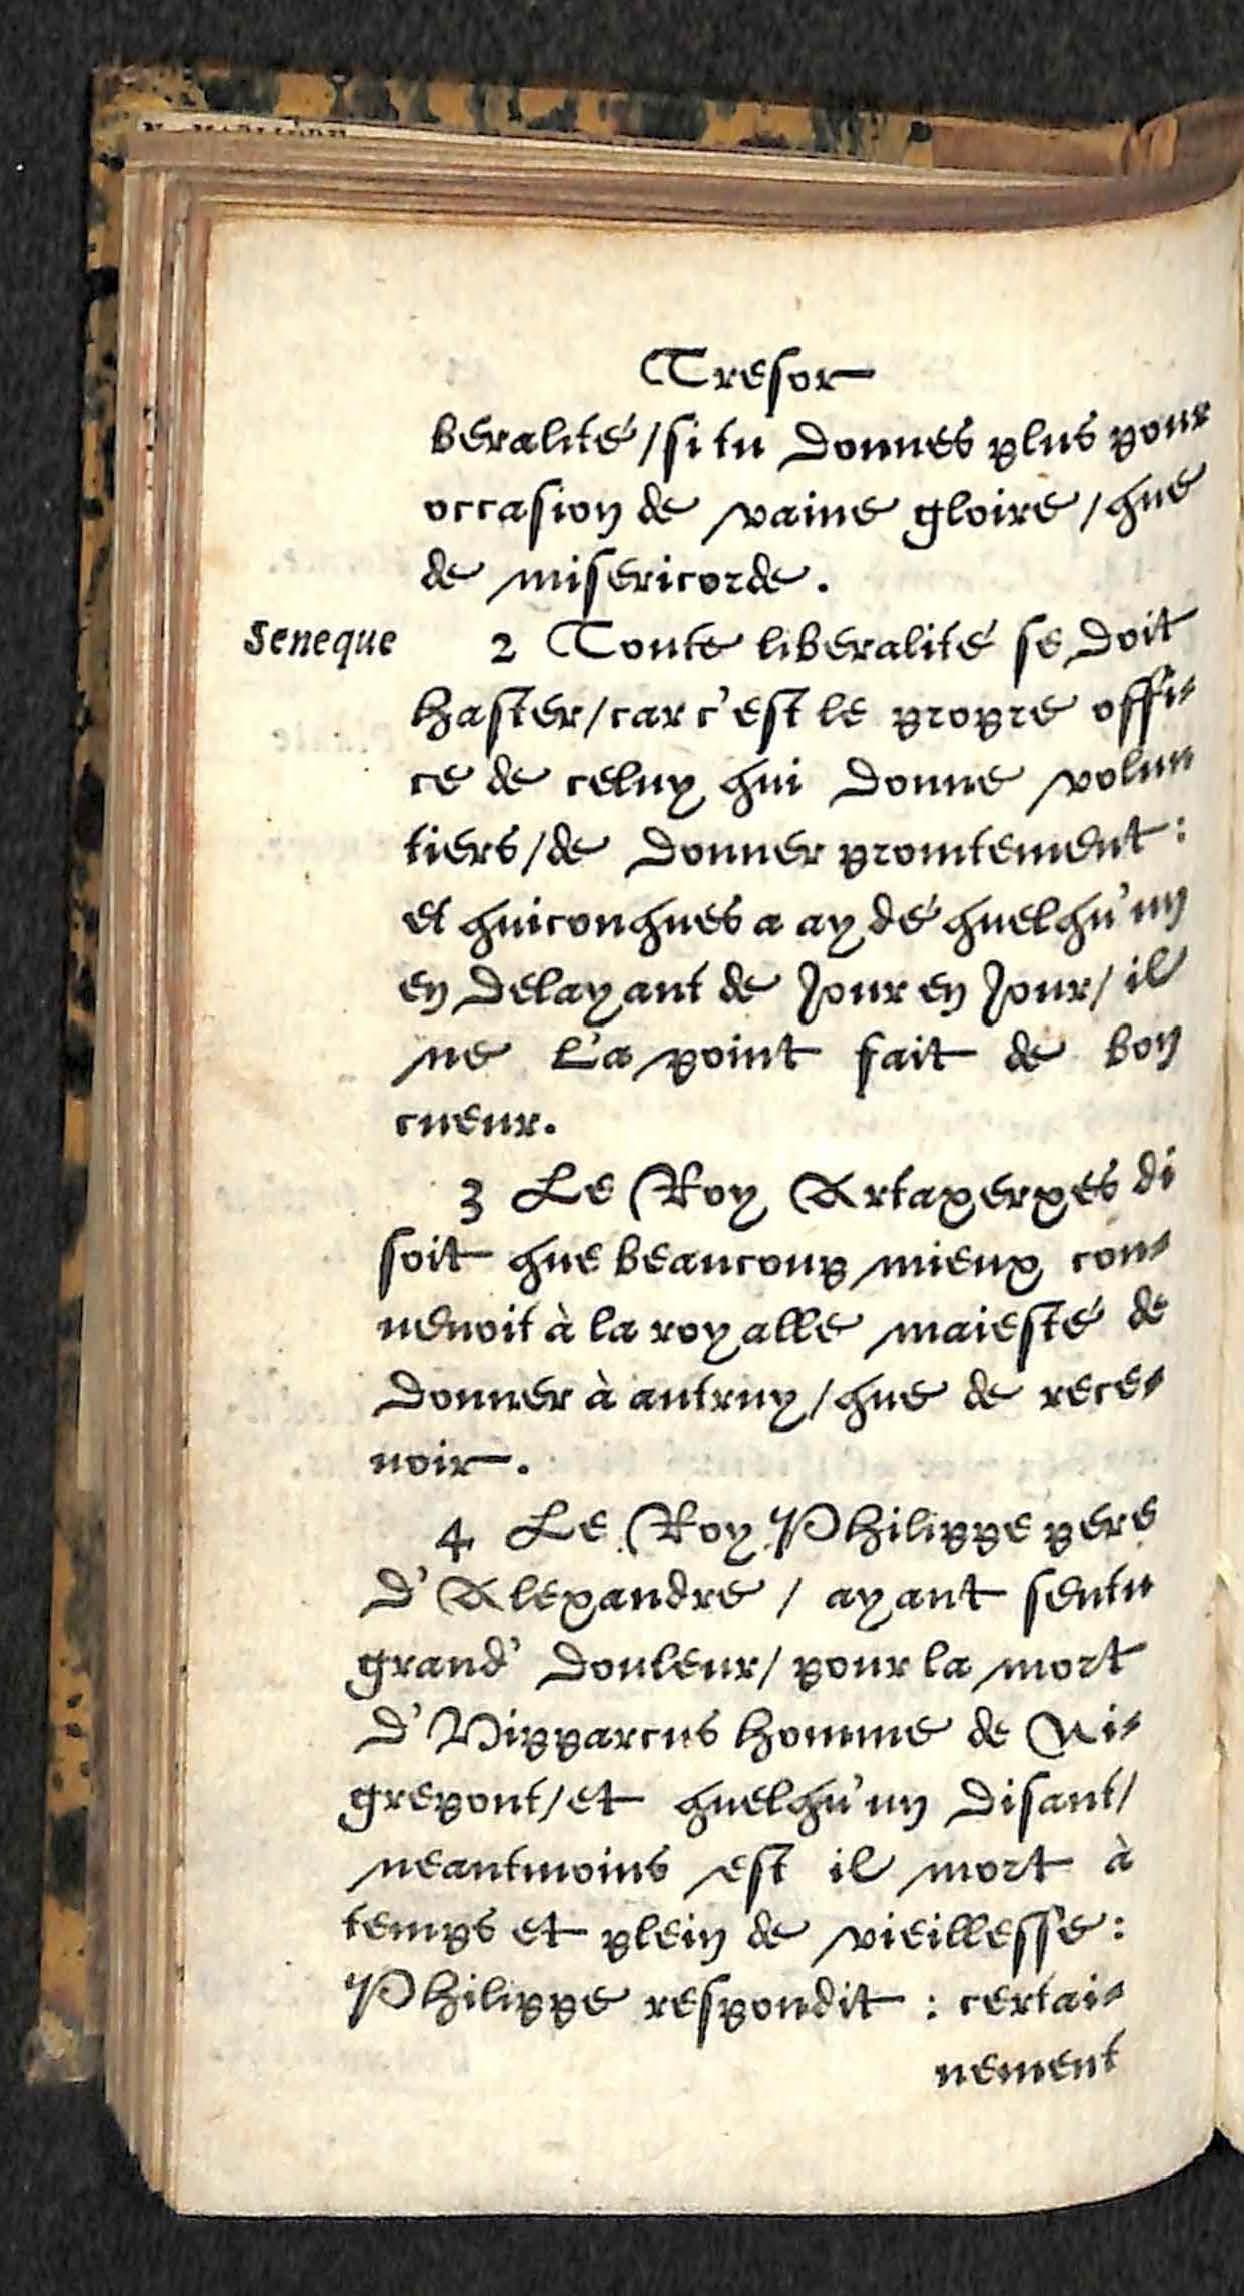 Tresor
beralité/si tu donnes plus pour
occasion de vaine gloire/que
de misericorde.
Seneque
2 Toute liberalité se doit
haster/car c'est le propre offi-
ce de celuy qui donne volun
tiers/de donner promtement:
et quiconques a aydé quelqu'un
en delayant de Jour en Jour/il
ne l'a point fait de bon
cueur.
3 Le Roy Artaxerxes di
soit que beaucoup mieux con-
uenoit à la royalle maiesté de
donner à autruy/que de rece-
uoir.
4 Le Roy Philippe pere
d'Alexandre/ayant sentu
grand' douleur/pour la mort
d'Hipparcus homme de Ni-
grepont/et quelqu'un disant/
neantmoins est il mort à
temps et plein de vieillesse:
Philippe respondit: certai-
nement